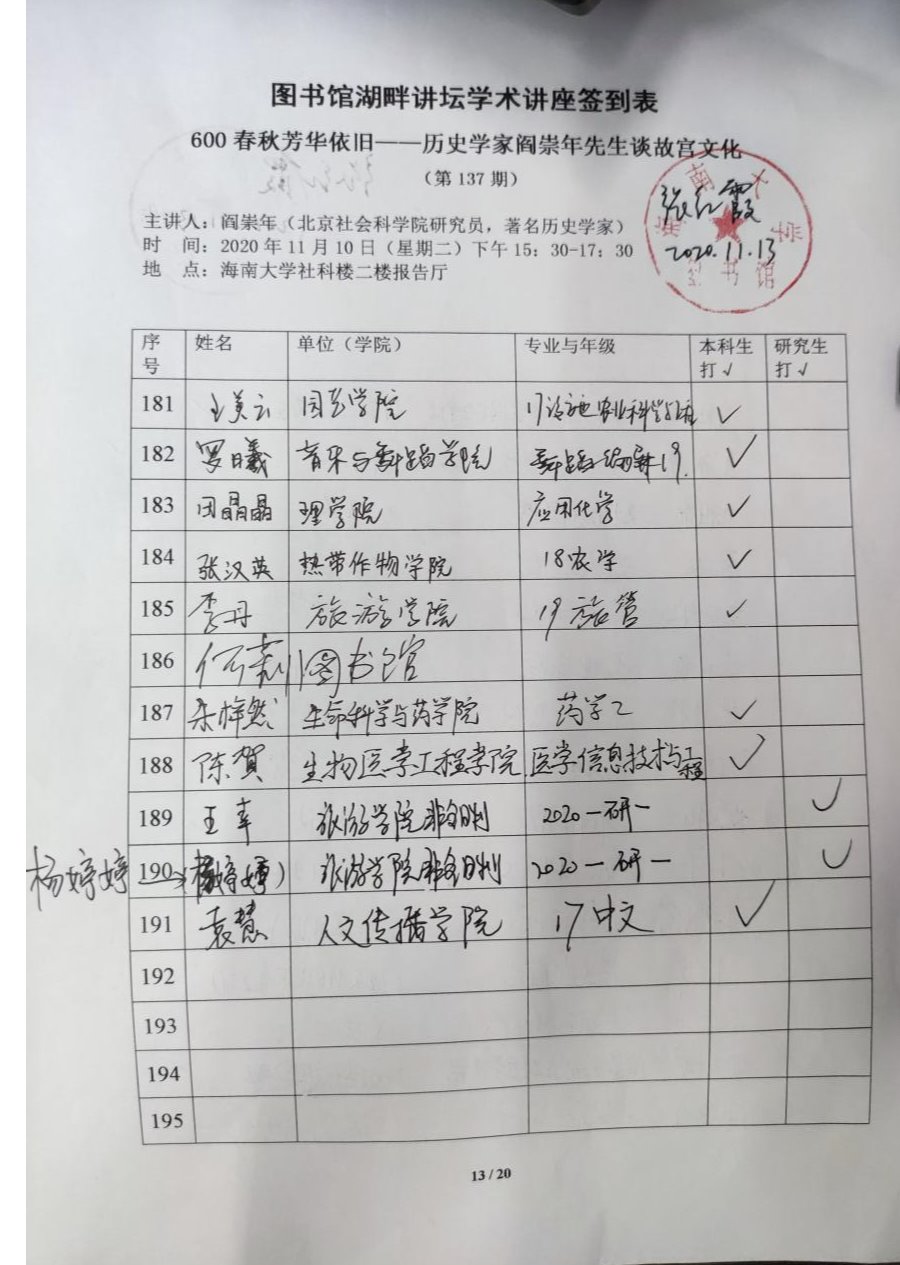 图书馆湖畔讲坛学术讲座签到表
600 春秋芳华依旧——历史学家阎崇年先生谈故宫文化
（第 137 期）
张红霞
2020.11.13
海南大学
图书馆
主讲人：阎崇年（北京社会科学院研究员，著名历史学家）
时 间：2020 年 11 月 10 日（星期二）下午 15：30-17：30
地 点：海南大学社科楼二楼报告厅
序号 姓名 单位（学院） 专业与年级 本科生打√ 研究生打√
181 王美云 园艺学院 17设施农业科学与工程 √
182 罗曦 音乐与舞蹈学院 舞蹈编舞19. √
183 田晶晶 理学院 应用化学 √
184 张汉英 热带作物学院 18农学 √
185 李丹 旅游学院 19旅管 √
186 何莉 图书馆
187 朱梓然 生命科学与药学院 药学2 √
188 陈贺 生物医学工程学院 医学信息技术与工程 √
189 王幸 旅游学院非全日制 2020一研一 √
杨婷婷 190 旅游学院非全日制 2020一研一 √
191 袁慧 人文传播学院 17中文 √
192
193
194
195
13 / 20